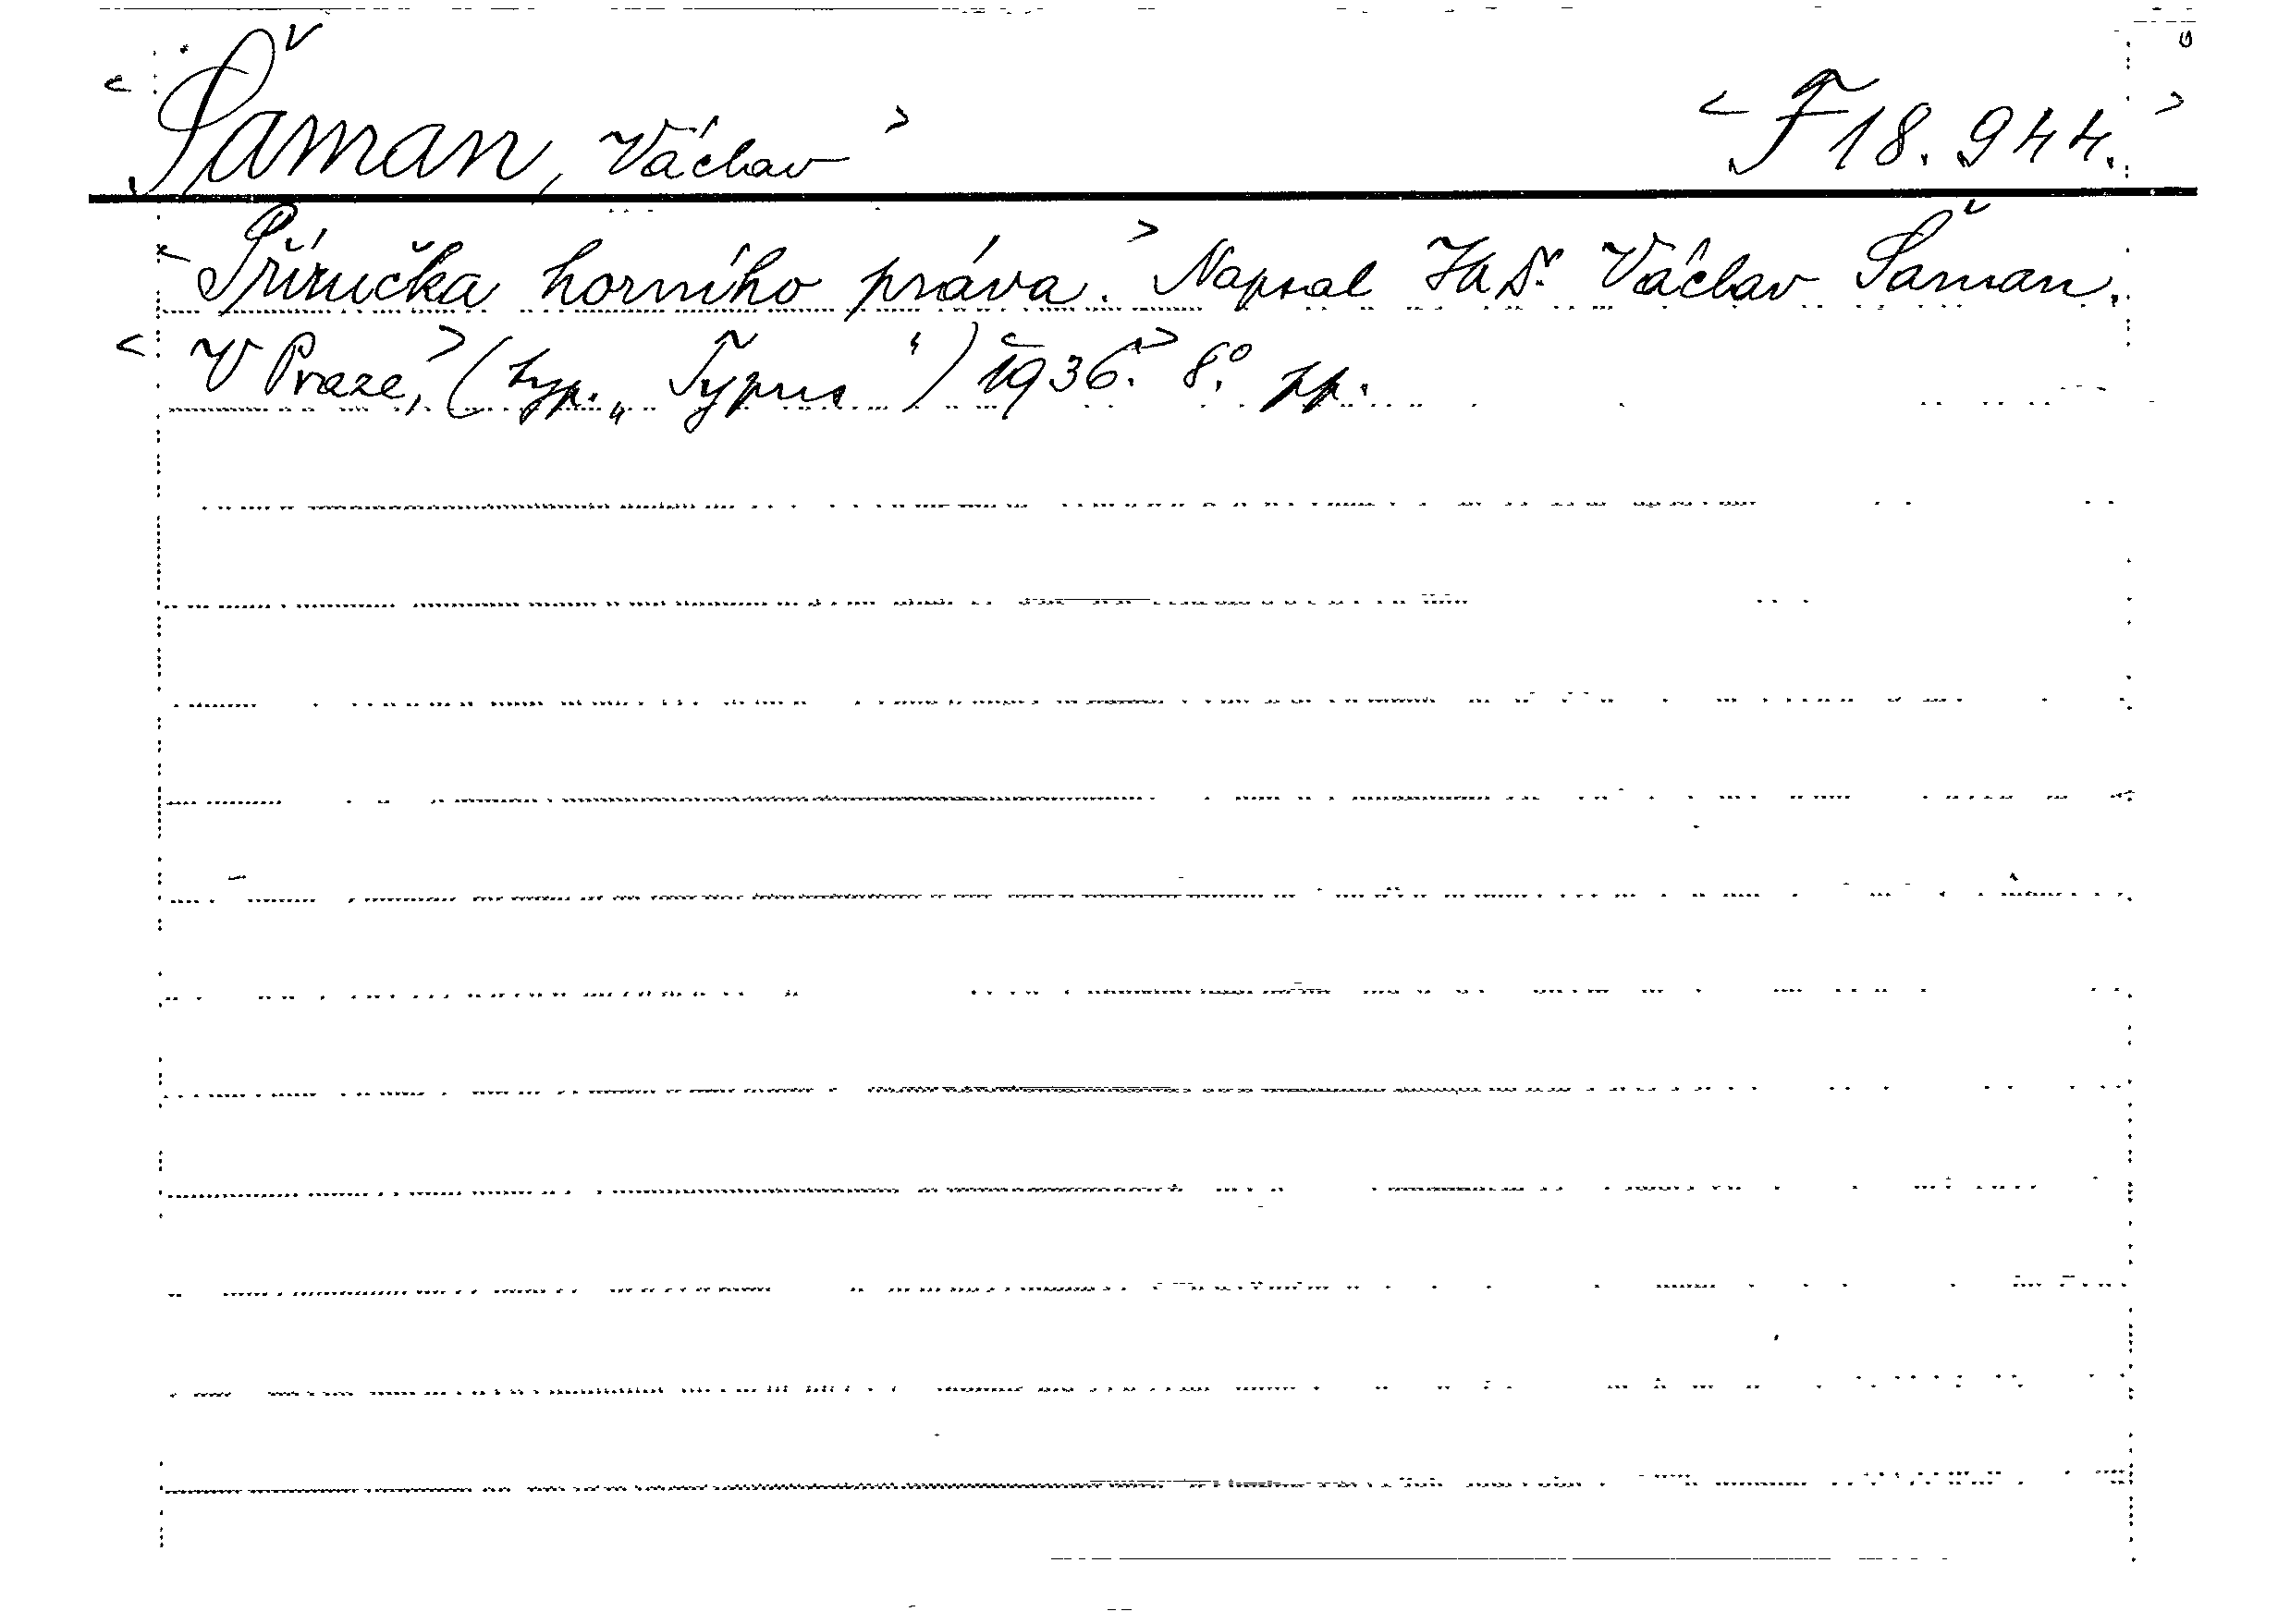 < Šáman, Václav > < F 18.944. >
< Příručka horního práva. > Napsal JUDr. Václav Šáman.
< V Praze, > (typ. „Typus“) < 1936. > 8°. pp.